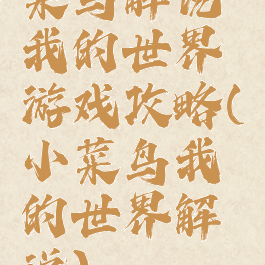 菜鸟解说
我的世界
游戏攻略(
小菜鸟我
的世界解
说)